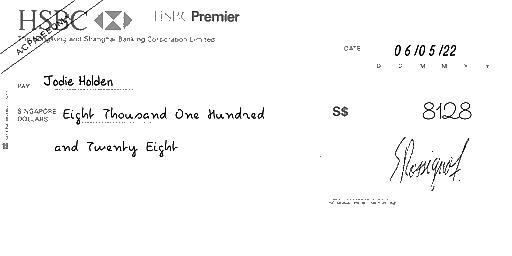 HSBC HSBC Premier
A/C PAYEE ONLY
Hongkong and Shanghai Banking Corporation Limited
DATE 06/05/22
D D M M Y Y
PAY Jodie Holden
SINGAPORE DOLLARS Eight Thousand One Hundred
and Twenty Eight
S$ 8128